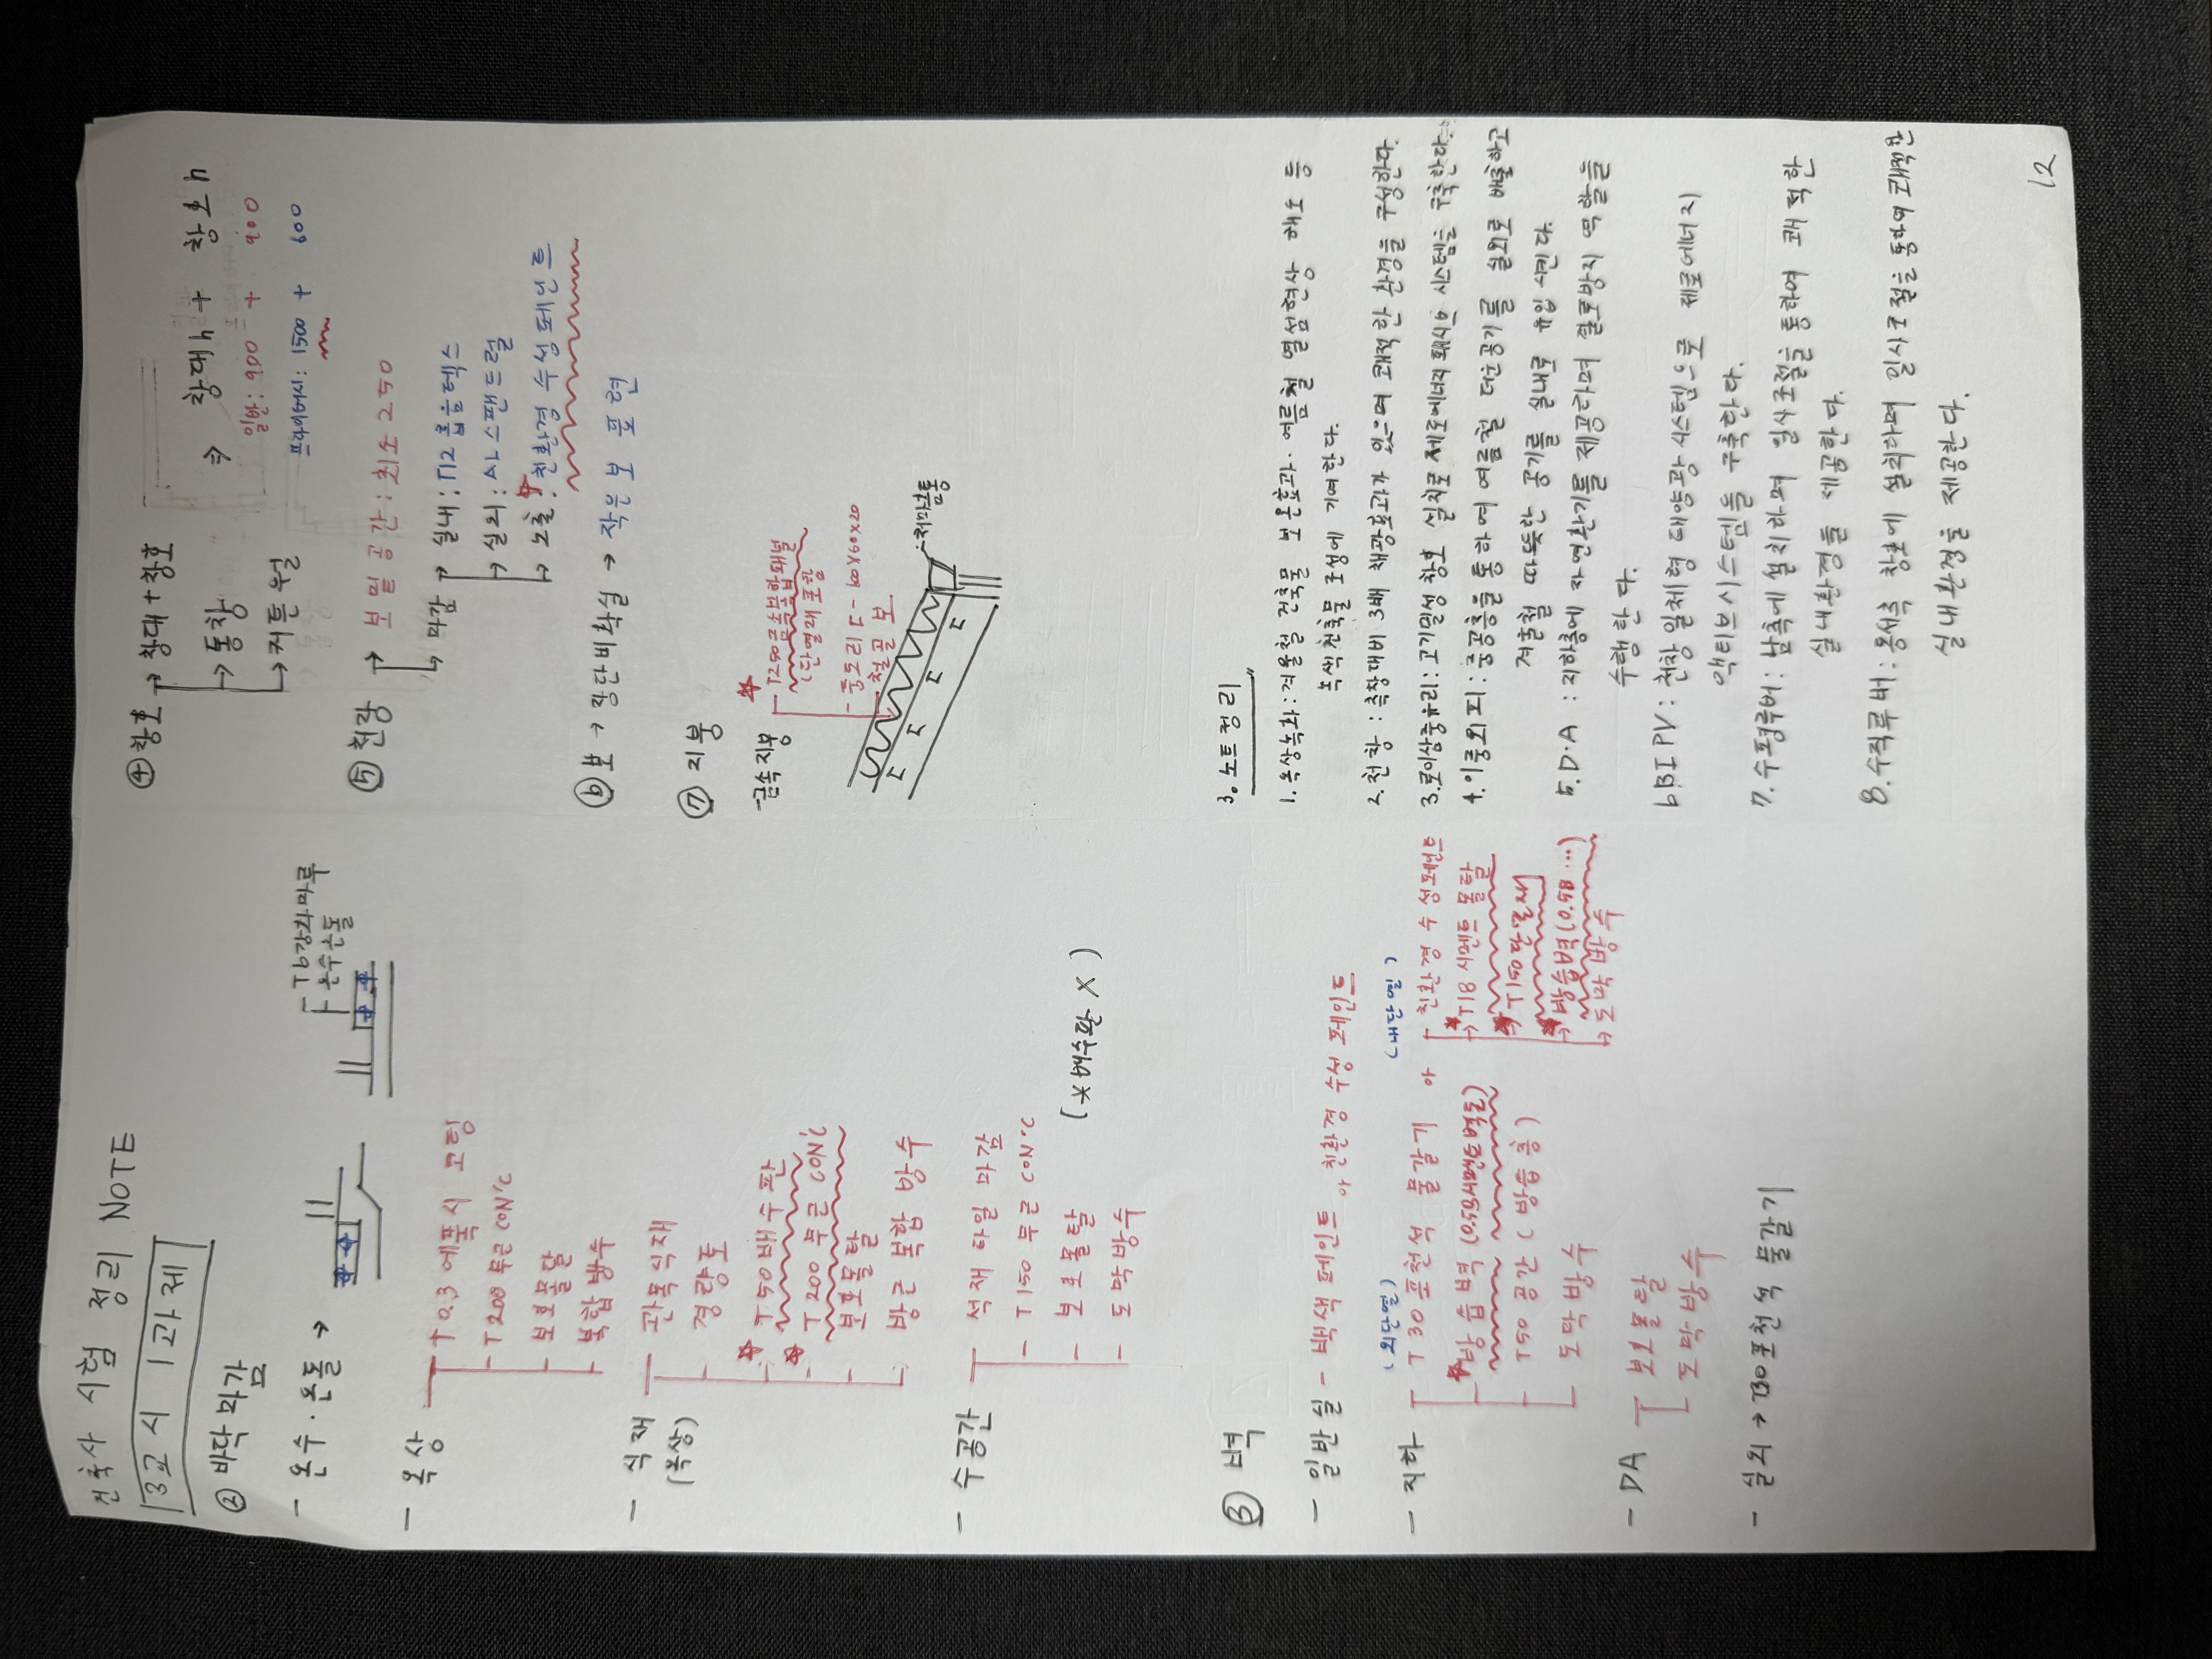 건축사 시험 정리 NOTE
3교시 1과제
② 바닥마감
- 온수·온돌 →
T6강화마루
온수온돌
- 옥상
T0.3 에폭시 코팅
T200 무근 CON'C
보호몰탈
복합방수
- 식재
(옥상)
관목식재
경량토
☆ T50 배수판
☆ T200 무근 CON'C
보호몰탈
방근 복합 방수
- 수공간
석재타일 마감
T150 무근 CON'C
보호몰탈
도막방수
(* 배수판 X)
③ 벽
- 일반실 - 백색페인트 or 친환경 수성 페인트
- 지하
(외단열)
T30 포천석 물갈기 or
☆ 방습벽
T50 공간 (방습층)
도막방수
(내단열)
친환경 수성페인트
☆ T18 시멘트 몰탈
☆ T150 단열재
☆ 방습벽 (0.5B ...)
도막방수
- DA
보호몰탈
도막방수
- 실외 → T30 포천석 물갈기
④ 창호 → 창대+창호
→ 통창
→ 커튼월
⇒ 창대h + 창호h
일반: 900 + 900
프라이버시: 1500 + 600
⑤ 천장
→ 보밑공간: 최소 250
→ 마감
→ 실내: T12 흡음텍스
→ 실외: AL스팬드럴
→ 노출: ☆ 친환경 수성페인트
⑥ 보 → 장단비 확실 → 작은 보 표현
⑦ 지붕
금속지붕
☆ T250 금속복합패널
(단열재 포함)
중도리 ㄷ- 100X60X20
철골 보
처마홈통
3. 노트정리
1. 옥상녹화: 겨울철 건축물 보온효과·여름철 열섬현상 해소 등
녹색건축물 조성에 기여한다.
2. 천창: 측창대비 3배 채광효과가 있으며 쾌적한 환경을 구성한다.
3. 로이삼중유리: 고기밀성 창호 설치로 제로에너지 패시브 시스템을 구축한다.
4. 이중외피: 중공층을 통하여 여름철 더운공기를 실외로 배출하고
겨울철 따뜻한 공기를 실내로 유입시킨다.
5. D.A: 지하층에 자연환기를 제공하며 결로방지 역할을
수행한다.
6. BIPV: 천창 일체형 태양광 시스템으로 제로에너지
액티브시스템을 구축한다.
7. 수평루버: 남측에 설치하며 일사조절을 통하여 쾌적한
실내환경을 제공한다.
8. 수직루버: 동서측 창호에 설치하며 일사조절을 통하여 쾌적한
실내환경을 제공한다.
12